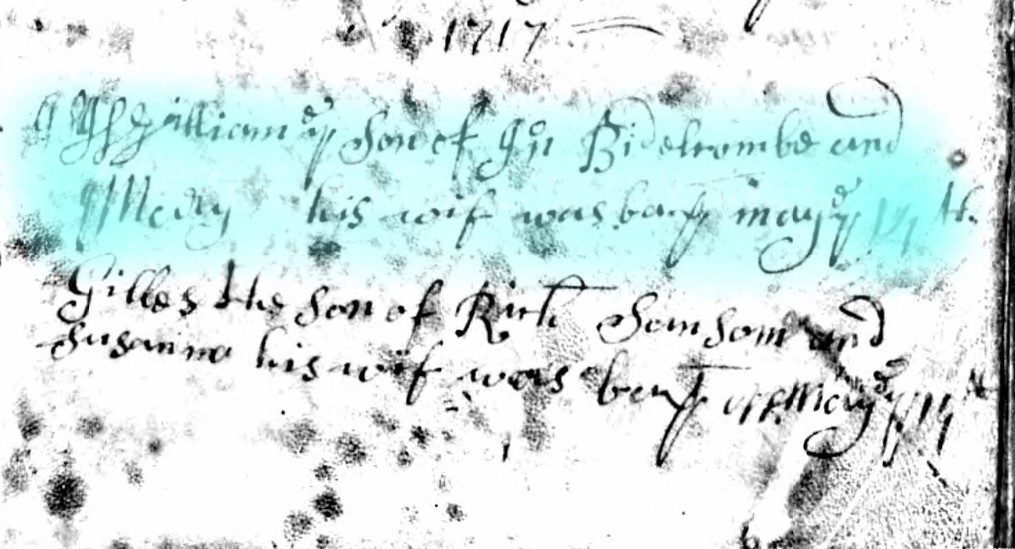 1717
William ye Son of Jon Bidelcombe and
Mary his wif was bapt may ye
Gilles the Son of Rich Samsom and
Susanna his wif was bapt May ye